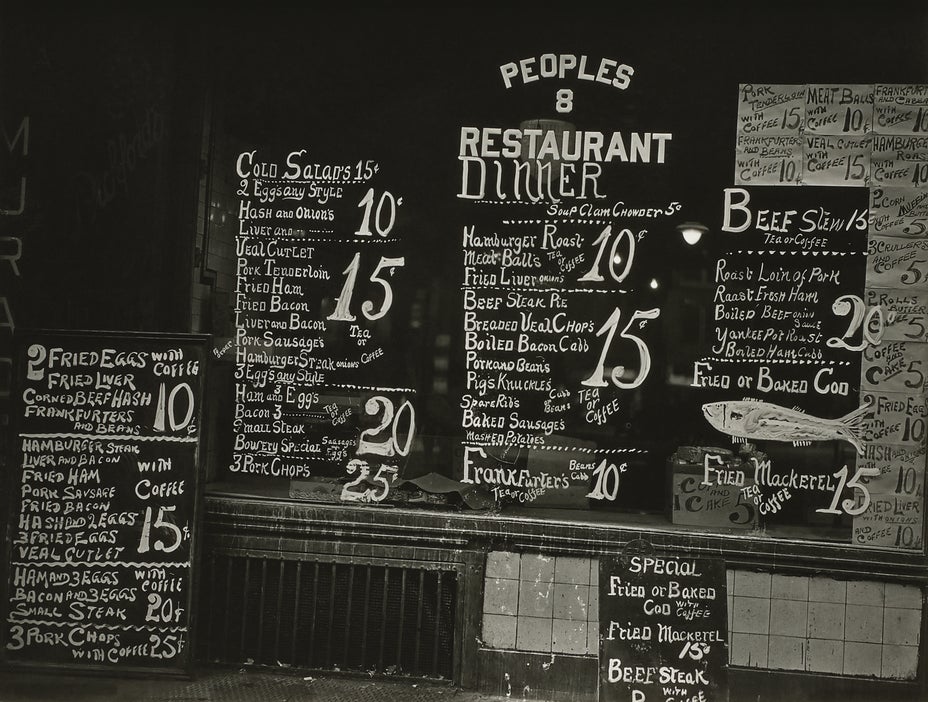 PEOPLES
8
RESTAURANT
DINNER
COLD SALAD'S 15¢
2 EGGS ANY STYLE
HASH AND ONION'S
LIVER AND
10¢
VEAL CUTLET
PORK TENDERLOIN
FRIED HAM
FRIED BACON
LIVER AND BACON
PORK SAUSAGE'S
HAMBURGER STEAK ONIONS
3 EGGS ANY STYLE
15¢
TEA
OR
COFFEE
HAM AND 3 EGG'S
BACON 3
SMALL STEAK
BOWERY SPECIAL SAUSAGES EGG'S
TEA OR COFFEE
20¢
3 PORK CHOP'S
25¢
SOUP CLAM CHOWDER 5¢
HAMBURGER ROAST
MEAT BALL'S
FRIED LIVER ONION'S
TEA OR COFFEE
10¢
BEEF STEAK PIE
BREADED VEAL CHOP'S
BOILED BACON CABB
PORK AND BEAN'S
PIG'S KNUCKLE'S
SPARE RIBS
CABB OR BEANS
BAKED SAUSAGE'S
MASHED POTATOES
15¢
TEA OR COFFEE
FRANKFURTER'S BEANS CABB
TEA OR COFFEE
10¢
BEEF STEW 15
TEA OR COFFEE
ROAST LOIN OF PORK
ROAST FRESH HAM
BOILED BEEF
SAUCE
YANKEE POT ROAST
BOILED HAM CABB
20¢
FRIED OR BAKED COD
FRIED MACKEREL
TEA OR COFFEE
15¢
PORK
TENDERLOIN
WITH
COFFEE 15¢
MEAT BALLS
WITH
COFFEE 10¢
FRANKFURT
WITH
COFFEE 10
FRANKFURTERS
AND BEANS
WITH
COFFEE 10¢
VEAL CUTLET
WITH
COFFEE 15¢
HAMBURGER
ROAST
WITH
COFFEE 10
2 CORN
5
3 CRULLERS
AND
COFFEE
5
2 ROLLS
5
COFFEE
AND
CAKE 5
2 FRIED EGG
10
HASH
10
FRIED LIVER
WITH ONIONS
AND COFFEE 10
AND
CAKE 5
2 FRIED EGGS WITH
COFFEE
FRIED LIVER
CORNED BEEF HASH
FRANKFURTERS
AND BEANS
10¢
HAMBURGER STEAK
LIVER AND BACON
FRIED HAM
PORK SAUSAGE
FRIED BACON
HASH AND 2 EGGS
3 FRIED EGGS
VEAL CUTLET
WITH
COFFEE
15¢
HAM AND 3 EGGS
BACON AND 3 EGGS
SMALL STEAK
WITH
COFFEE
20¢
3 PORK CHOPS
WITH COFFEE 25¢
SPECIAL
FRIED OR BAKED
COD WITH COFFEE
FRIED MACKEREL
15¢
BEEF STEAK
WITH
M
U
R
A